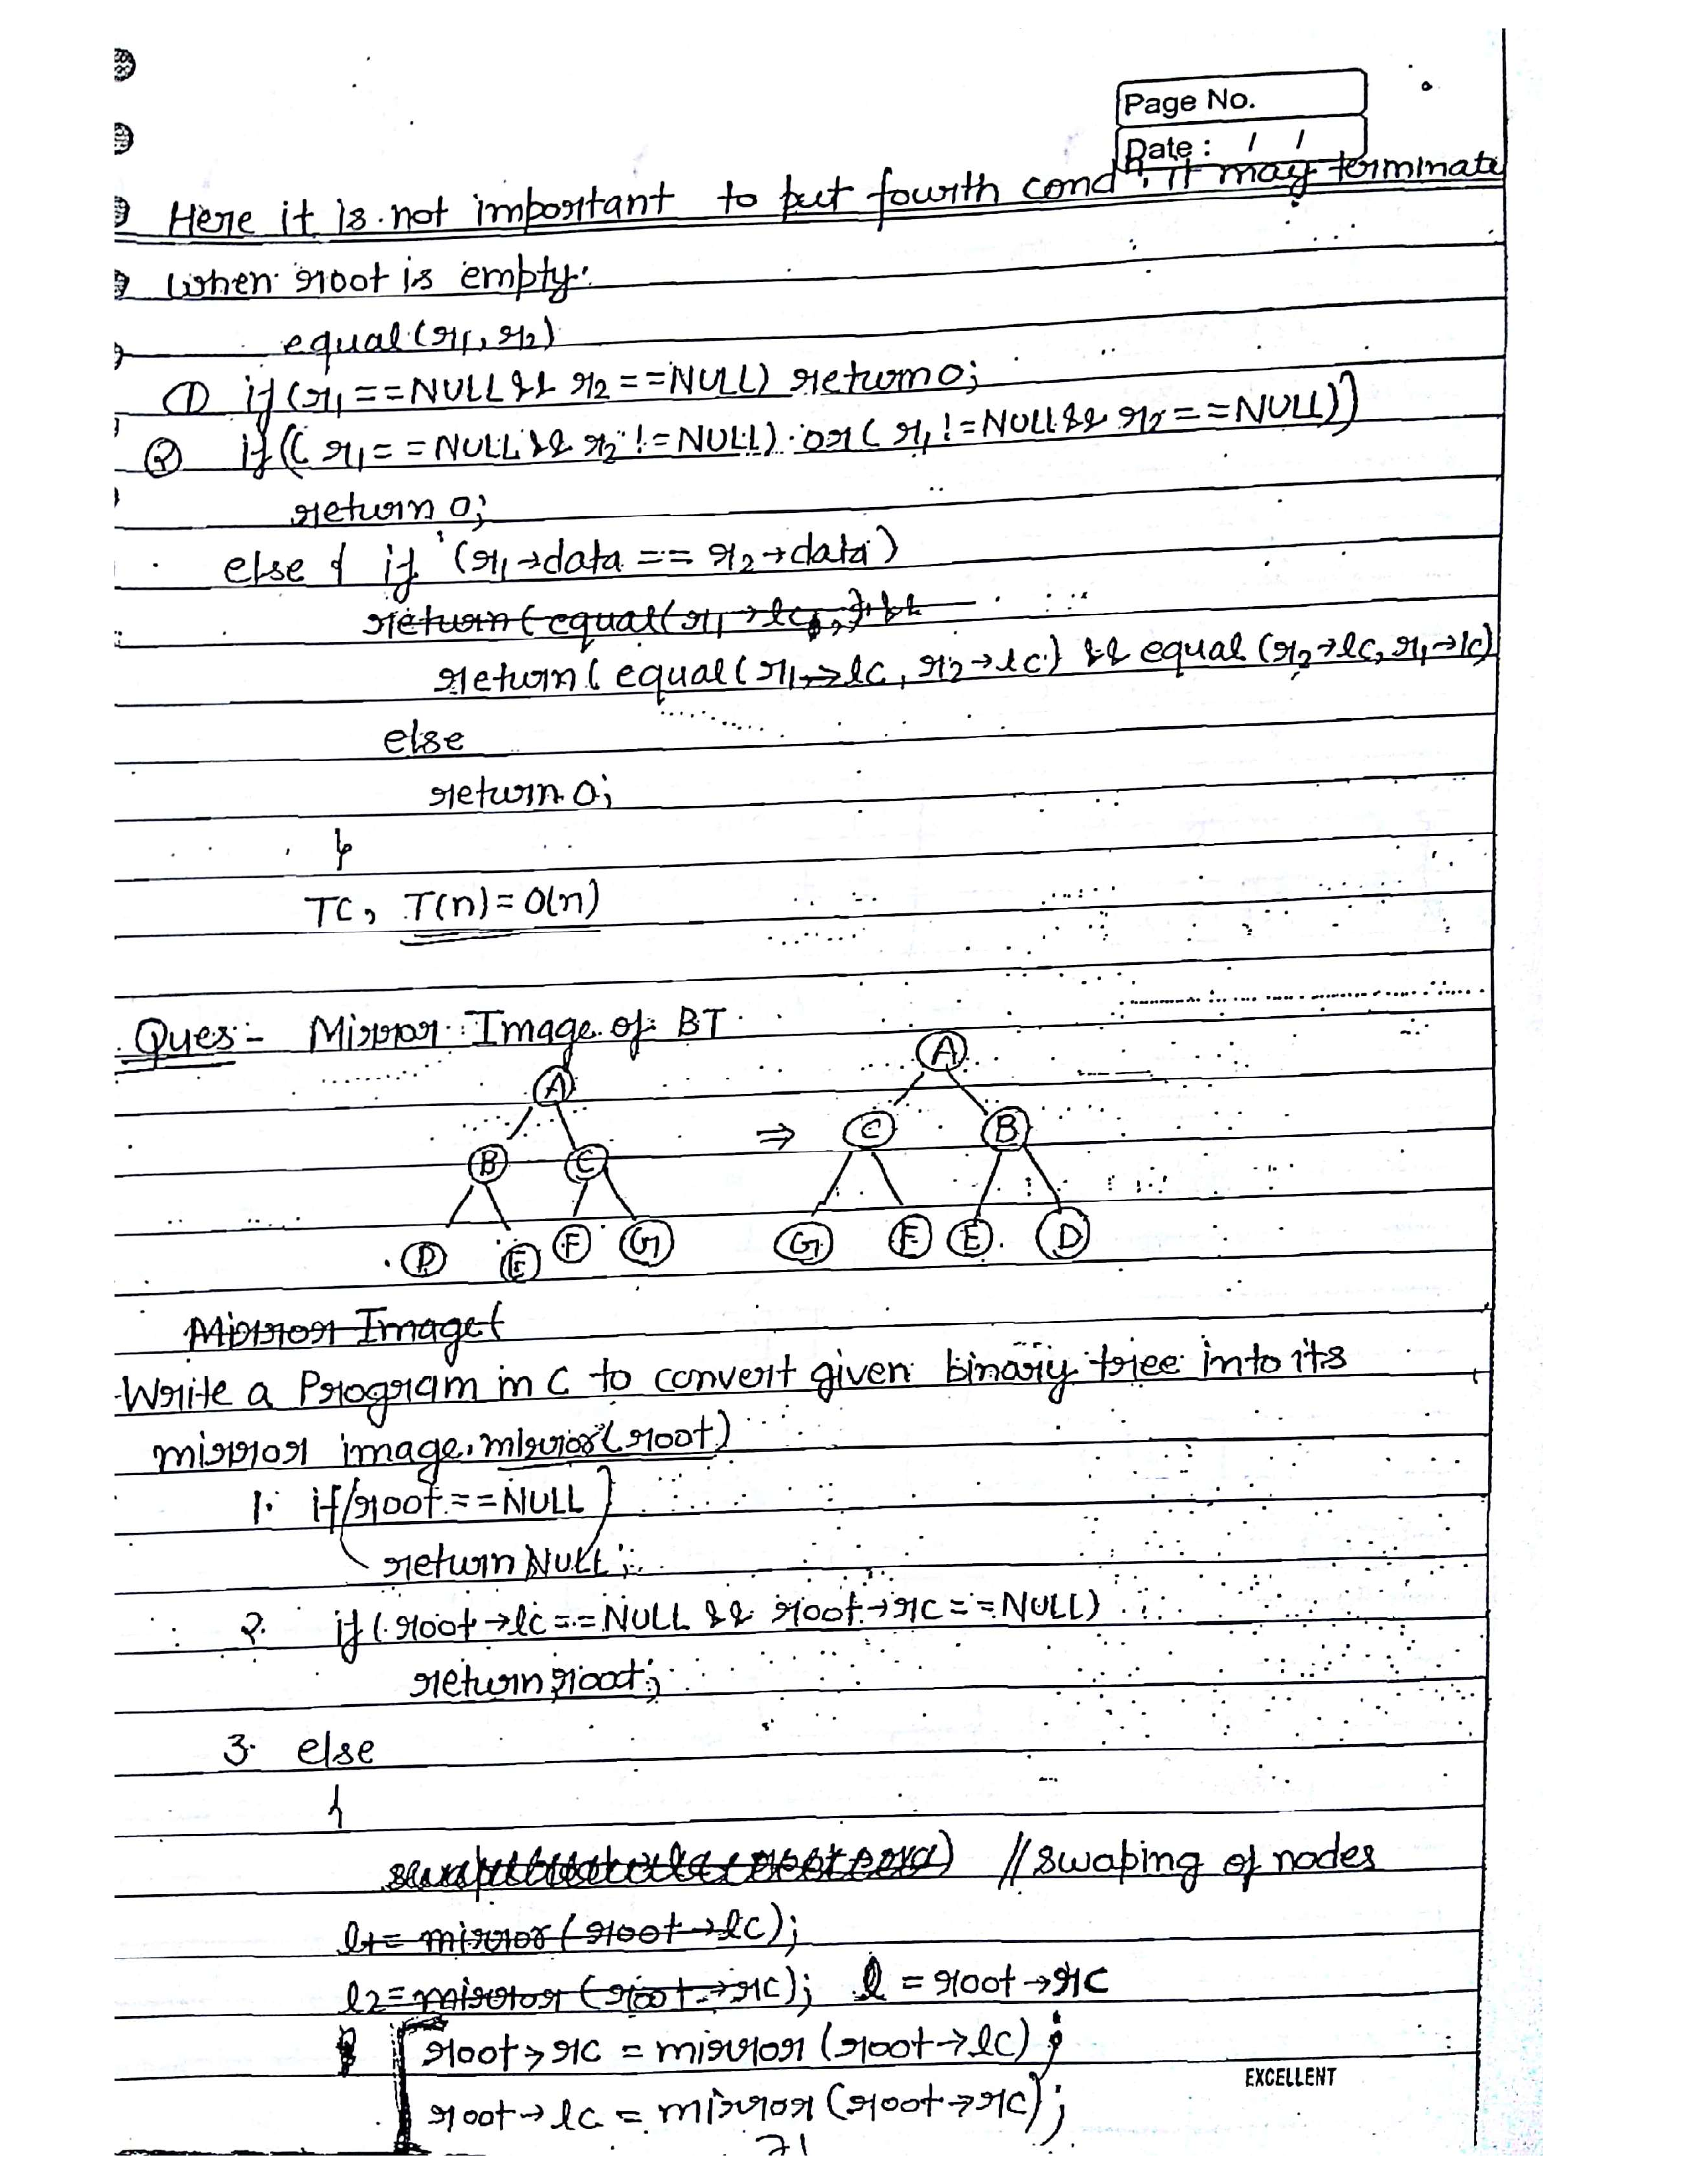 Page No.
Date : / /
Here it is not important to put fourth condⁿ. it may terminate
when root is empty.
equal(r1, r2)
① if(r1==NULL && r2==NULL) return 0;
② if((r1==NULL && r2!=NULL) or (r1!=NULL && r2==NULL))
return 0;
else { if (r1→data == r2→data)
return(equal(r1→lc,
return(equal(r1→lc, r2→lc) && equal(r2→lc, r1→lc)
else
return 0;
}
TC, T(n)=O(n)
Ques:- Mirror Image of BT
A A
B C ⇒ C B
D E F G G F E D
Mirror Image(
Write a Program in C to convert given binary tree into its
mirror image. mirror(root)
1. if(root==NULL)
return NULL;
2. if(root→lc==NULL && root→rc==NULL)
return root;
3. else
{
//swaping of nodes
l1= mirror(root→lc);
l2=mirror(root→rc); l = root→rc
root→rc = mirror(root→lc);
root→lc = mirror(root→rc);
EXCELLENT
71